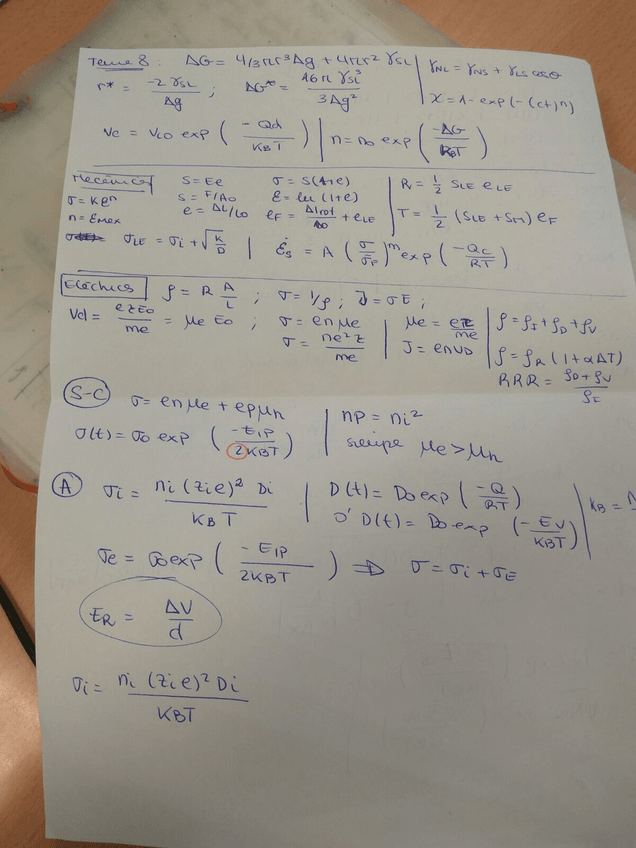 Tema 8: ΔG = 4/3πr³Δg + 4πr² γSL | γNL = γNS + γLS cosθ
r* = -2 γSL / Δg ; ΔG* = 16π γSL³ / 3Δg² | X = 1 - exp(-(ct)n)
Vc = Vco exp ( -Qd / KBT ) | n = no exp ( -ΔG / KBT )
Mecánica S = Ee σ = S(1+e) | R = 1/2 SLE eLE
σ = Kεn S = F/Ao ε = ln (1+e)
n = εmax e = ΔL/Lo eF = Δltot / lo + eLE | T = 1/2 (SLE + SM) eF
σLE = σi + √K/D | ε̇s = A ( σ / σP )m exp ( -Qc / RT )
Eléctrica ρ = R A/L ; σ = 1/ρ ; J = σE ;
Vd = e z Eo / me = μe Eo ; σ = enμe | μe = ez / me | ρ = ρI + ρD + ρV
σ = ne²z / me | J = enVD | ρ = ρR (1 + αΔT)
RRR = ρD + ρV / ρI
S-C σ = enμe + epμn | np = ni²
σ(t) = σo exp ( -EIP / 2KBT ) | siempre μe > μn
A σi = ni (zie)² Di / KBT | D(t) = Do exp ( -Q / RT ) | KB =
O' D(t) = Do exp ( -EV / KBT )
σe = σo exp ( -EIP / 2KBT ) ⇒ σ = σi + σE
ER = ΔV / d
σi = ni (zie)² Di / KBT